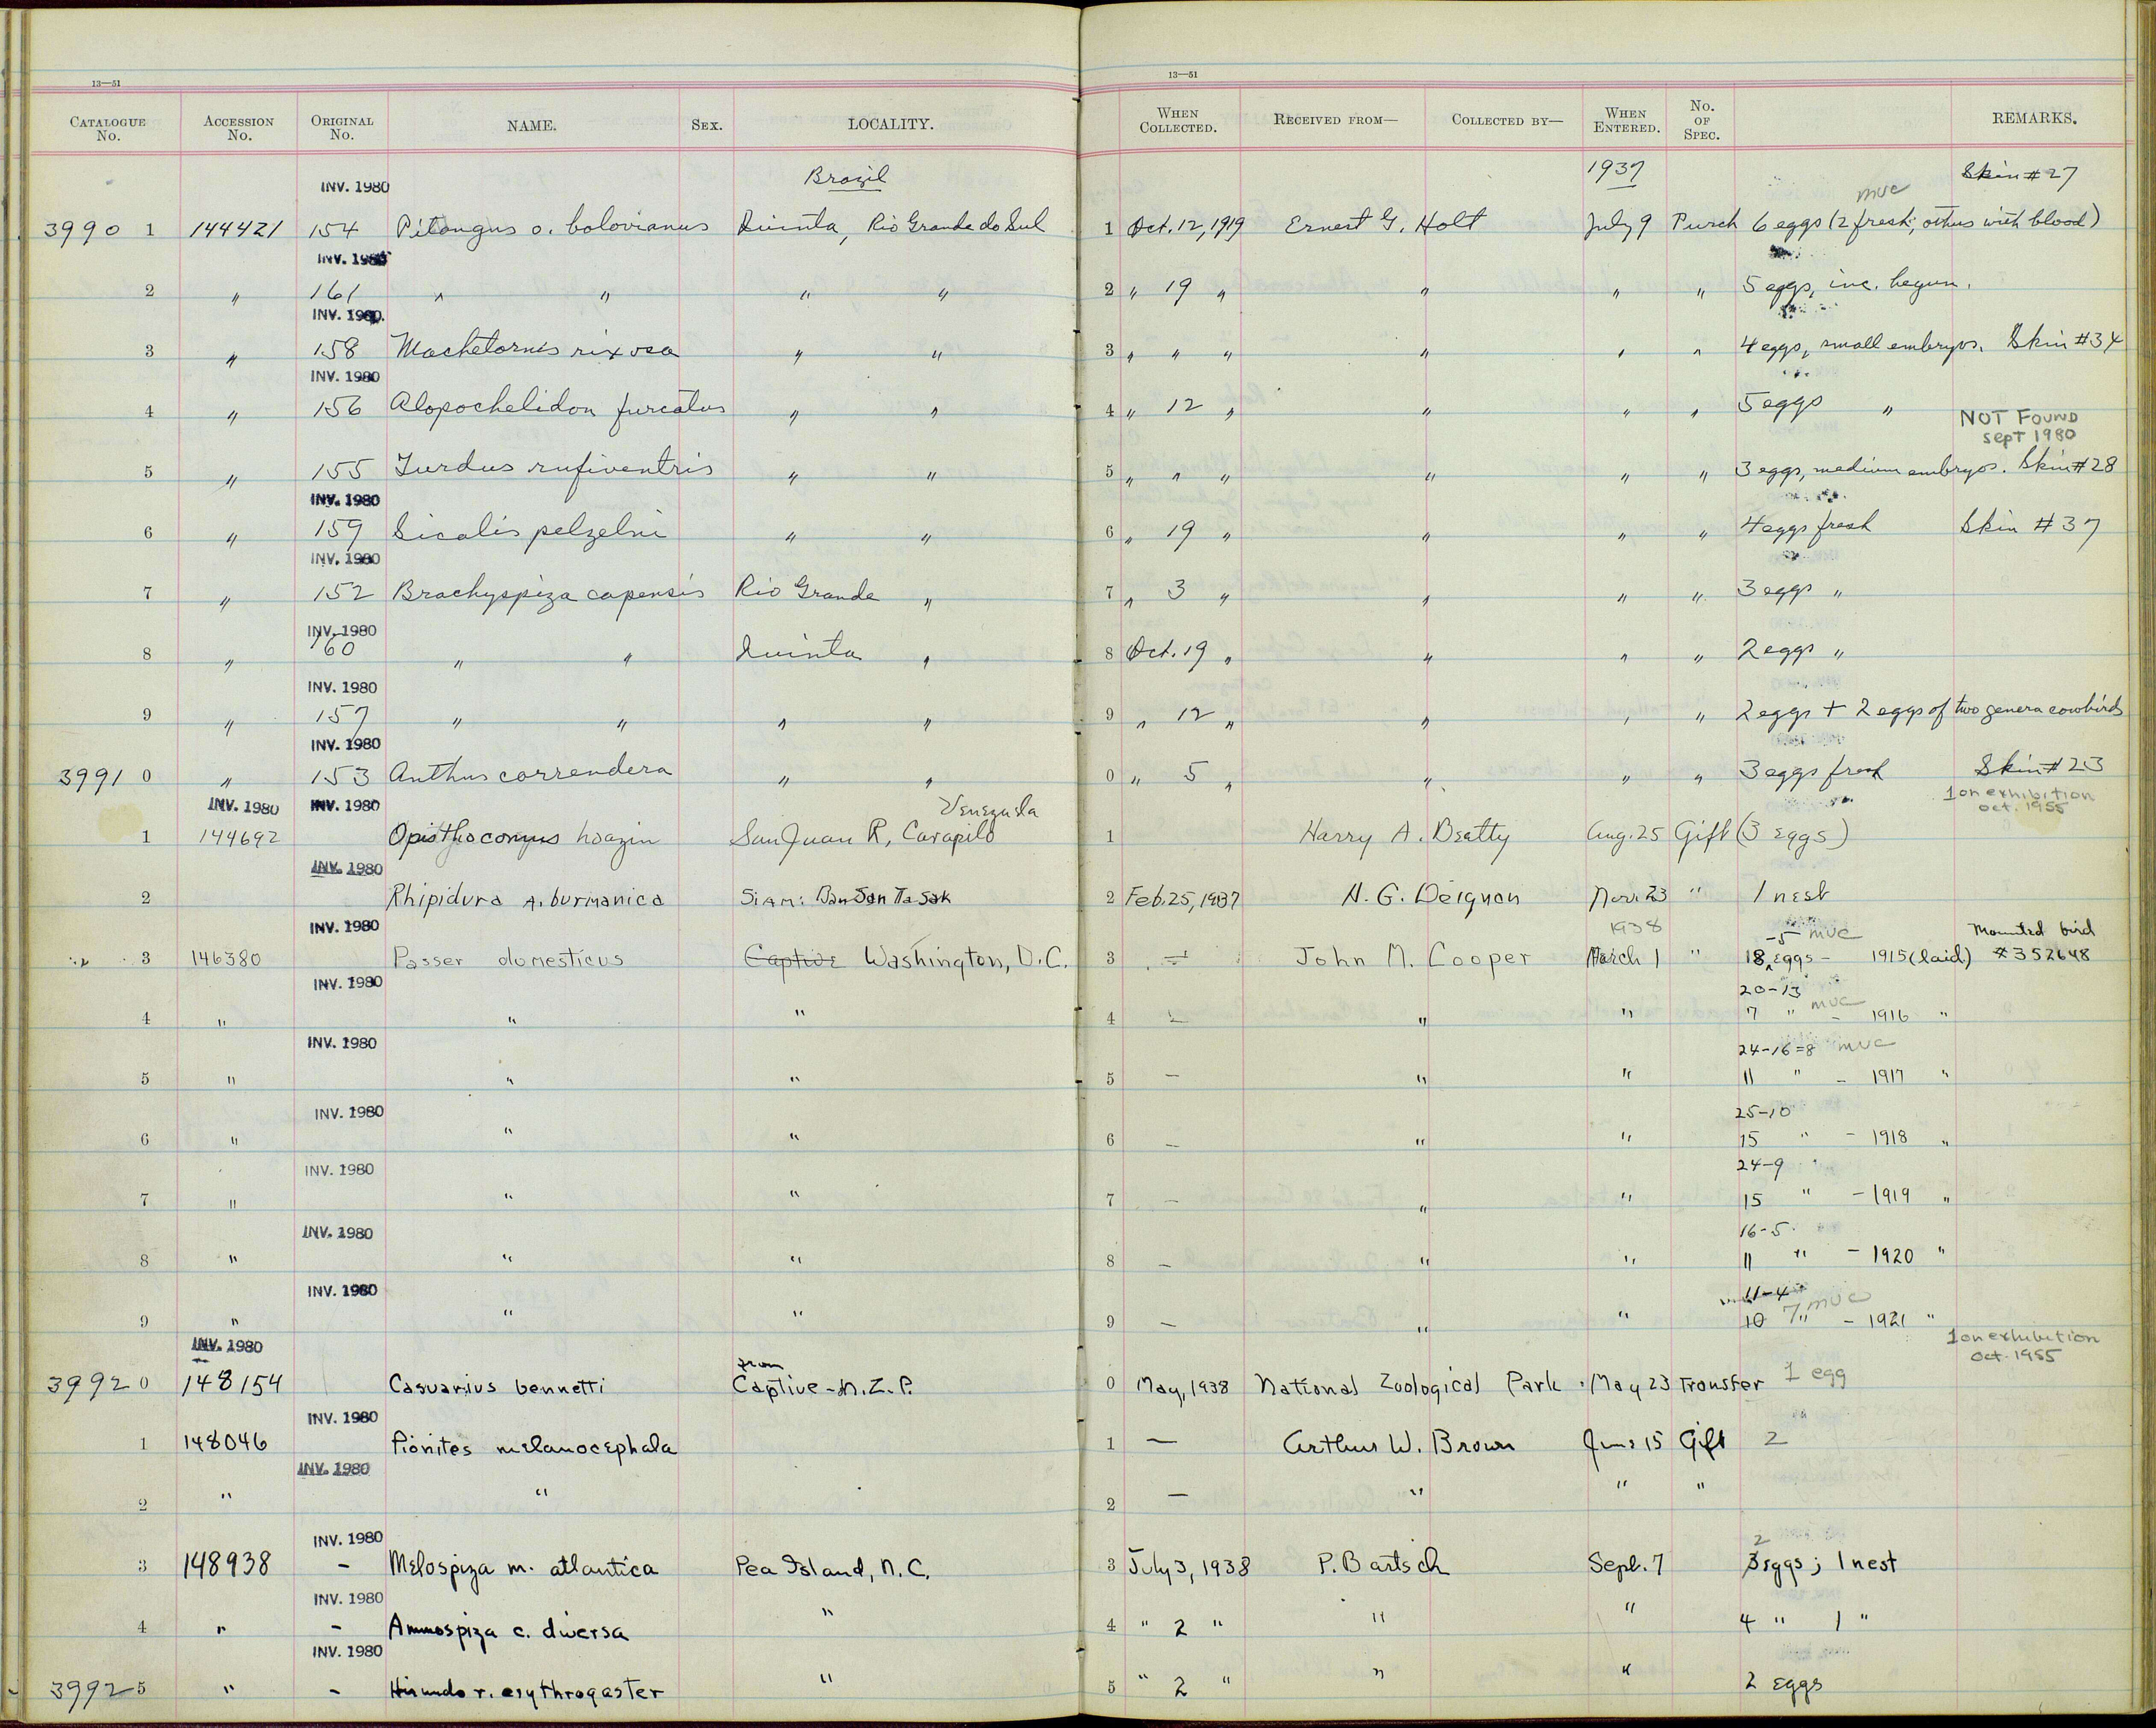 13—51
13—51
CATALOGUE No. ACCESSION No. ORIGINAL No. NAME. SEX. LOCALITY. WHEN COLLECTED. RECEIVED FROM— COLLECTED BY— WHEN ENTERED. No. OF SPEC. REMARKS.
INV. 1980 Brazil 1937 mvc Skin #27
3990 1 144421 154 Pitangus o. bolovianus Quinta, Rio Grande do Sul 1 Oct. 12, 1919 Ernest G. Holt July 9 Purch 6 eggs (2 fresh; others with blood)
INV. 1980
2 " 161 " " " " 2 " 19 " " " " 5 eggs, inc. begun.
INV. 1980.
3 " 158 Machetornis rixosa " " 3 " " " " " " 4 eggs, small embryos. Skin #34
INV. 1980
4 " 156 Alopochelidon furcatus " " 4 " 12 " " " " 5 eggs "
NOT FOUND
sept 1980
5 " 155 Turdus rufiventris " " 5 " " " " " " 3 eggs, medium embryos. Skin #28
INV. 1980
6 " 159 Sicalis pelzelni " " 6 " 19 " " " " 4 eggs fresh Skin #37
INV. 1980
7 " 152 Brachyspiza capensis Rio Grande " 7 " 3 " " " " 3 eggs "
INV. 1980
8 " 160 " " Quinta " 8 Oct. 19 " " " " 2 eggs "
INV. 1980
9 " 157 " " " " 9 " 12 " " " " 2 eggs + 2 eggs of two genera cowbirds
INV. 1980
3991 0 " 153 Anthus correndera " " 0 " 5 " " " " 3 eggs fresh Skin #23
INV. 1980 INV. 1980 Venezuela 1 on exhibition
oct. 1955
1 144692 Opisthocomus hoazin San Juan R, Carapilo 1 Harry A. Beatty Aug. 25 Gift (3 eggs)
INV. 1980
2 Rhipidura A. burmanica SIAM: Ban San Ta Sak 2 Feb. 25, 1937 H. G. Deignan Nov. 23 " 1 nest
INV. 1980 1938 -5 mvc Mounted bird
3 146380 Passer domesticus Captive Washington, D.C. 3 — John M. Cooper March 1 " 18 eggs - 1915 (laid) #352648
INV. 1980 20-13 mvc
4 " " " 4 — " " 7 " - 1916 "
INV. 1980 24-16=8 mvc
5 " " " 5 — " " 11 " - 1917 "
INV. 1980 25-10
6 " " " 6 — " " 15 " - 1918 "
INV. 1980 24-9
7 " " " 7 — " " 15 " - 1919 "
INV. 1980 16-5
8 " " " 8 — " " 11 " - 1920 "
INV. 1980 11-4 mvc
9 " " " 9 — " " 10 7 " - 1921 "
INV. 1980 from 1 on exhibition
oct. 1955
3992 0 148154 Casuarius bennetti Captive-N.Z.P. 0 May, 1938 National Zoological Park May 23 Transfer 1 egg
INV. 1980
1 148046 Pionites melanocephala 1 — Arthur W. Brown June 15 Gift 2
INV. 1980
2 " " 2 — " " "
INV. 1980 2
3 148938 - Melospiza m. atlantica Pea Island, N.C. 3 July 3, 1938 P. Bartsch Sept. 7 3 eggs; 1 nest
INV. 1980
4 " - Ammospiza c. diversa " 4 " 2 " " " 4 " 1 "
INV. 1980
3992 5 " - Hirundo r. erythrogaster " 5 " 2 " " " 2 eggs